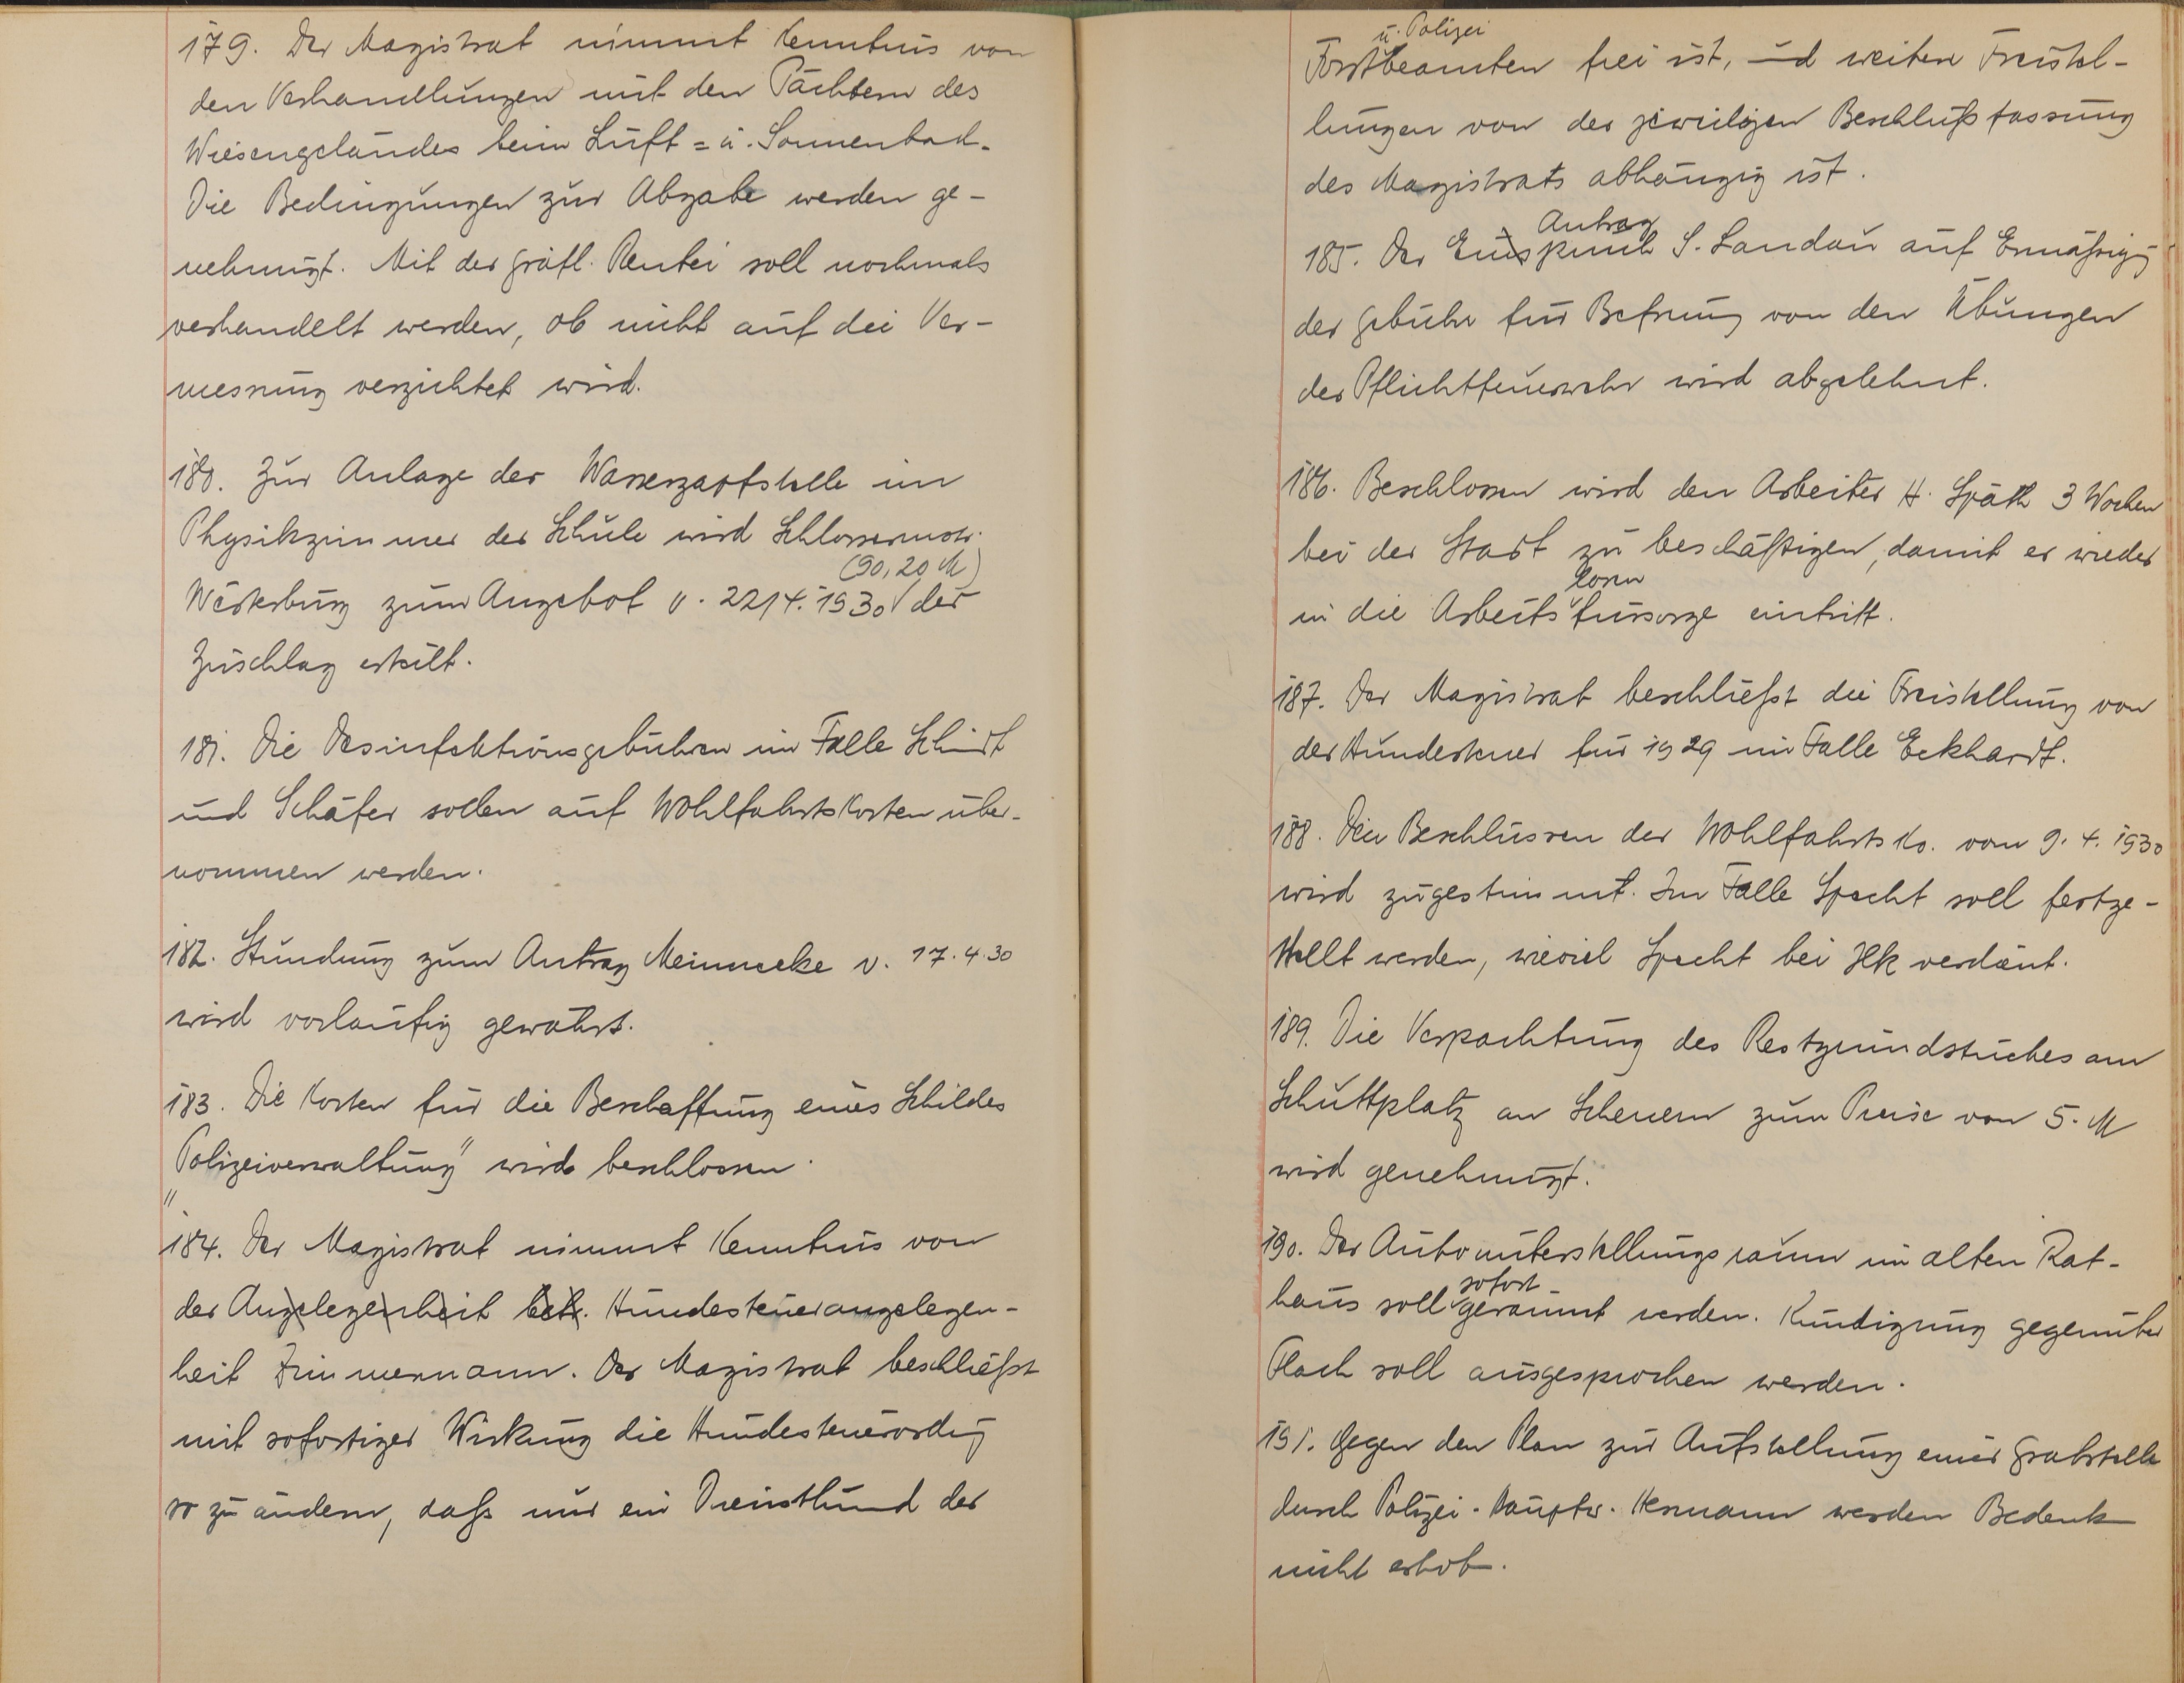 179. Der Magistrat nimmt Kenntnis von
den Verhandlungen mit den Pächtern des
Wiesengeländes beim Luft = u. Sonnenbad.
Die Bedingungen zur Abgabe werden ge-
nehmigt. Mit der gräfl. Rentei soll nochmals
verhandelt werden, ob nicht auf die Ver-
messung verzichtet wird.
180. Zur Anlage der Wasserzapfstelle im
Physikzimmer der Schule wird Schlossermstr.
(90,20 M)
Westerburg zum Angebot v. 22/4. 1930 der
Zuschlag erteilt.
181. Die Desinfektionsgebühren im Falle Schmidt
und Schäfer sollen auf Wohlfahrtskosten über-
nommen werden.
182. Stundung zum Antrag Meinnecke v. 17.4.30
wird vorläufig gewährt.
183. Die Kosten für die Beschaffung eines Schildes
"Polizeiverwaltung" wird beschlossen.
184. Der Magistrat nimmt Kenntnis von
der Angelegenheit betr. Hundesteuerangelegen-
heit Zimmermann. Der Magistrat beschließt
mit sofortiger Wirkung die Hundesteuerordng
so zu ändern, daß nur ein Diensthund der
u. Polizei
Forstbeamten frei ist, und weitere Freistel-
lungen von der jeweiligen Beschlußfassung
des Magistrats abhängig ist.
Antrag
185. Der Einspruch S. Landau auf Ermäßigg
der Gebühr für Befreiung von den Übungen
der Pflichtfeuerwehr wird abgelehnt.
186. Beschlossen wird den Arbeiter H. Späth 3 Wochen
bei der Stadt zu beschäftigen, damit er wieder
losen
in die Arbeitsfürsorge eintritt.
187. Der Magistrat beschließt die Freistellung von
der Hundesteuer für 1929 im Falle Eckhardt.
188. Den Beschlüssen der Wohlfahrts Ko. vom 9. 4. 1930
wird zugestimmt. Im Falle Specht soll festge-
stellt werden, wieviel Specht bei Ilk verdient.
189. Die Verpachtung des Restgrundstückes am
Schuttplatz an Scheuern zum Preise von 5. M
wird genehmigt.
190. Der Autounterstellungsraum im alten Rat-
sofort
haus soll geräumt werden. Kündigung gegenüber
Flach soll ausgesprochen werden.
191. Gegen den Plan zur Aufstellung einer Grabstelle
durch Polizei-Hauptw. Hermann werden Bedenk
nicht erhob.